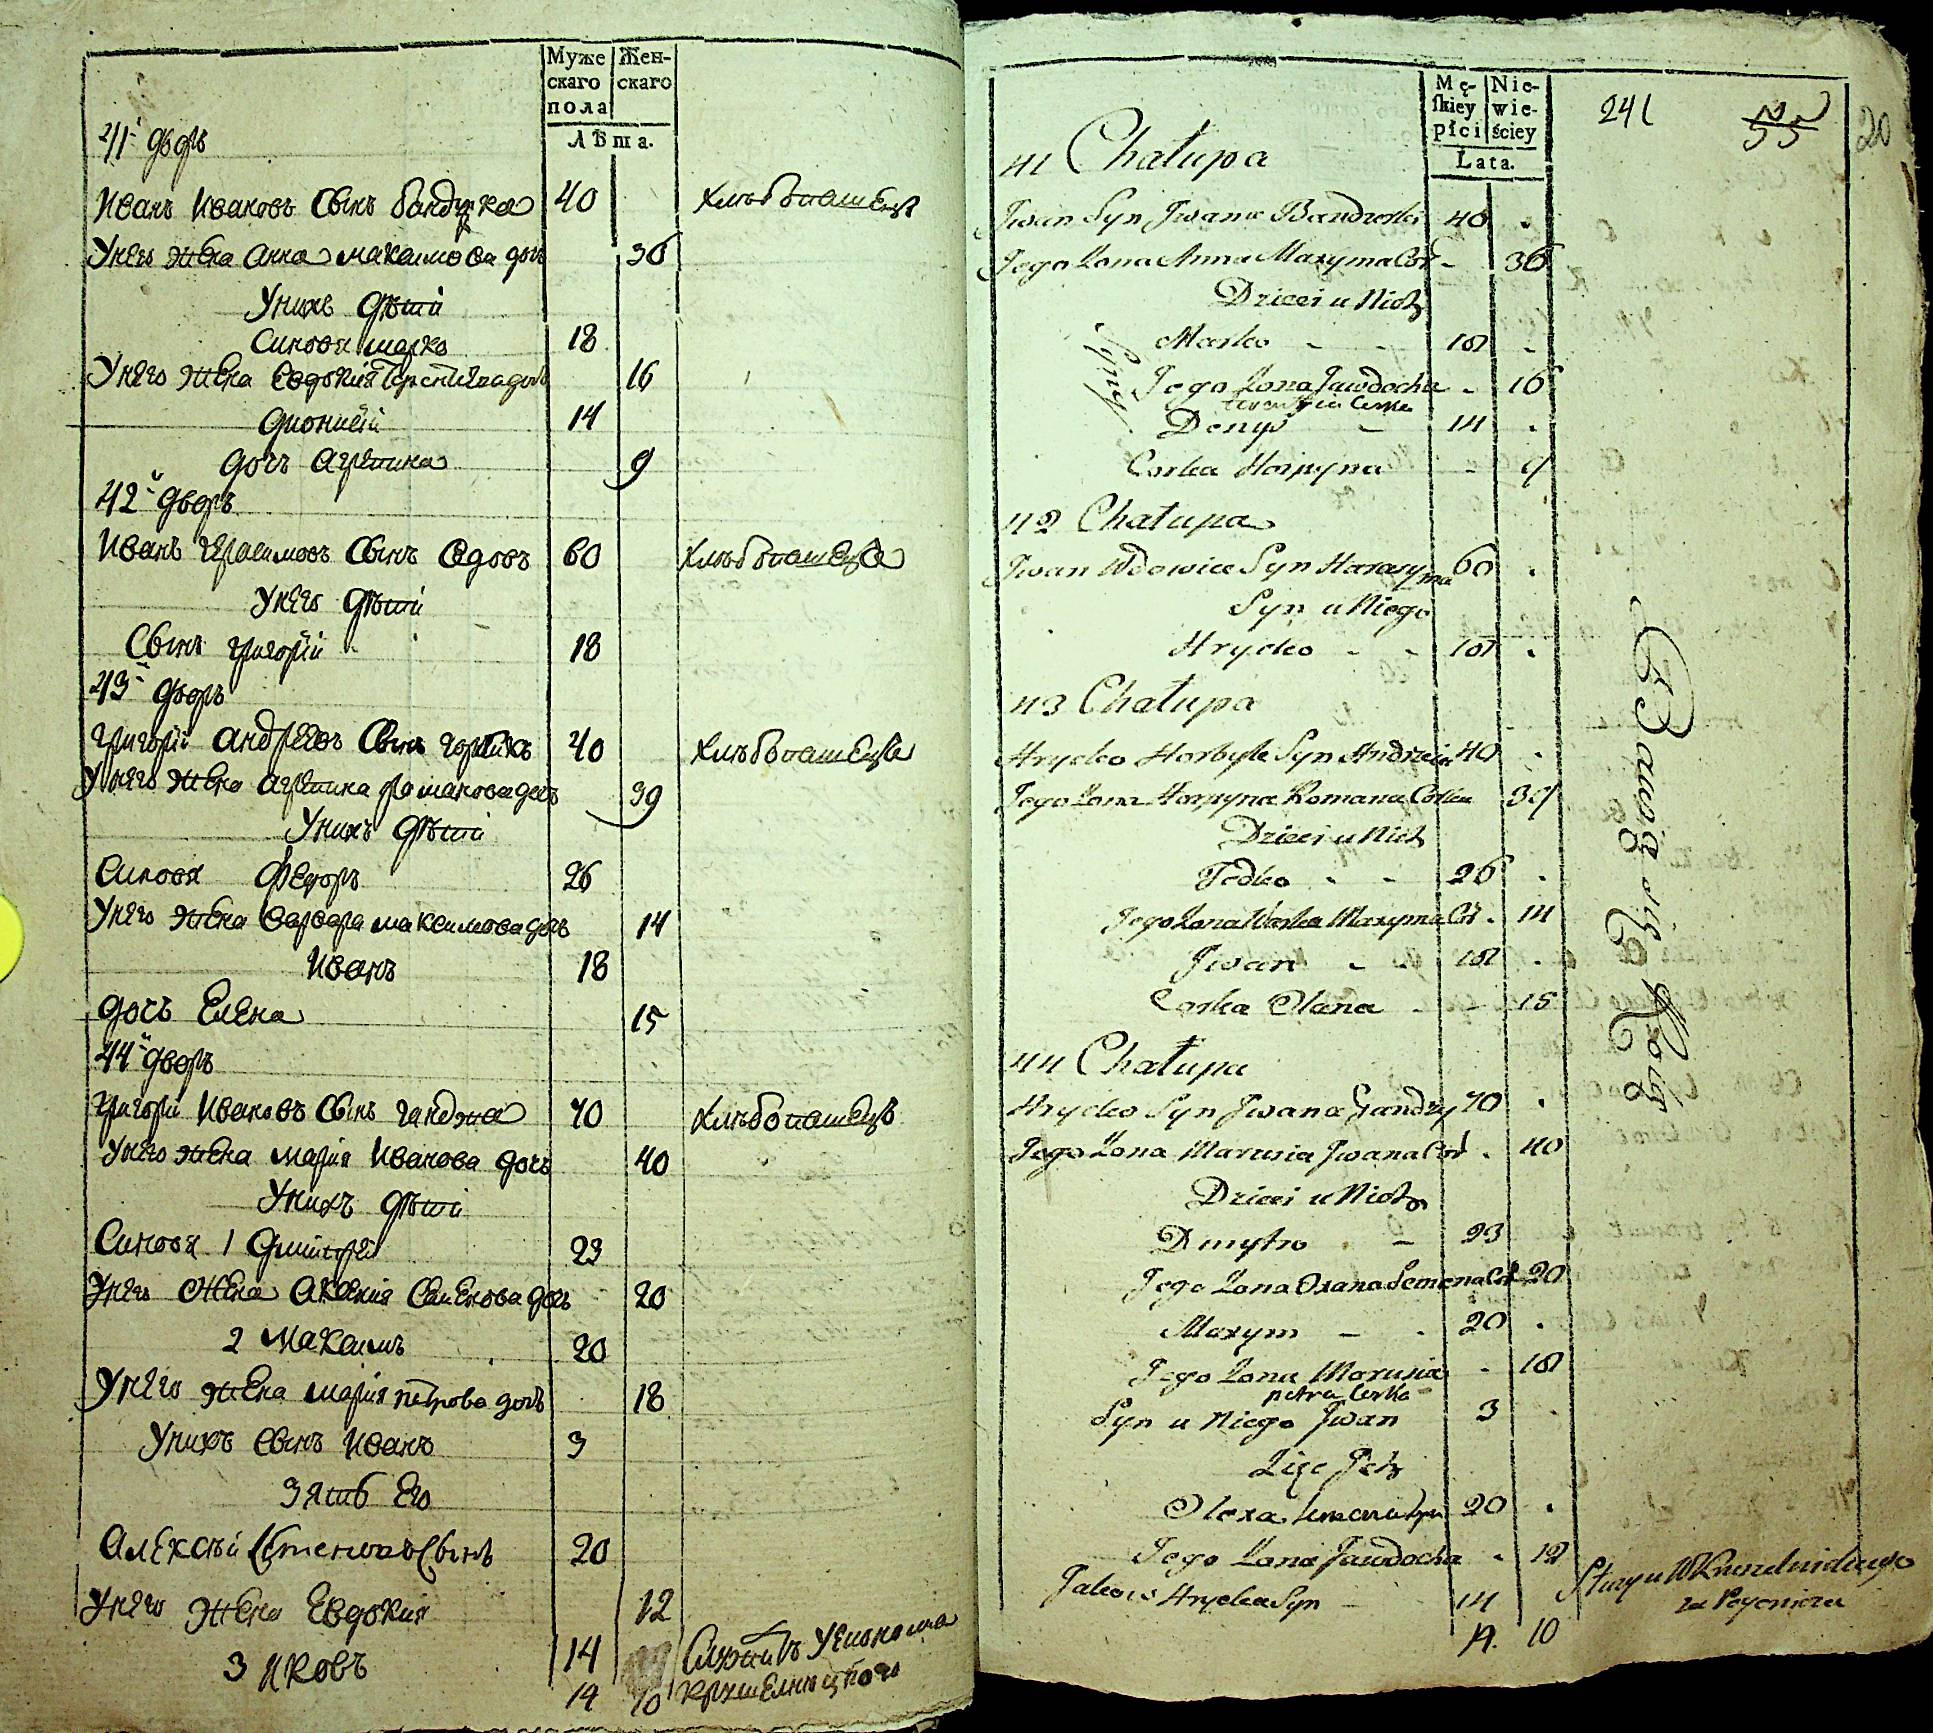 Муже Жен-
скаго скаго
пола
Лѣта.
41й дворъ
Иванъ Ивановъ Сынъ бандурка 40 хлѣбопашецъ
Унего жена анна максимова дочь 36
Унихъ дѣти
Синовя марко 18
Унего жена Евдокия терентиева дочь 16
дионисій 14
дочъ агрепина 9
42й дворъ
Иванъ герасимовъ Сынъ 60 хлѣбопашецъ
Унего дѣти
Сынъ григорій 18
43й дворъ
григорій андреевъ Сынъ горбикъ 40 хлѣбопашецъ
Унего жена агрепина романова дочь 39
Унихъ дѣти
Синовя федоръ 26
Унего жена варвара максимова дочь 14
Иванъ 18
дочъ Елена 15
44й дворъ
григорій Ивановъ Сынъ гандзиа 70 хлѣбопашецъ
Унего жена мария Иванова дочь 40
Унихъ дѣти
Синовя 1 дмитрій 23
Унего жена Аксения Семенова дочь 20
2 Максимъ 20
Унего жена мария петрова дочь 18
Унихъ сынъ Иванъ 3
Зять Его
Алексѣй Сынъ 20
Унего жена Евдокия 12
3 Яковъ 14 Служитъ Уеконома
14 10 крушелницкого
Mę- Nie-
skiey wie-
płci ściey
Lata.
241 55 20
41 Chałupa
Jwan Syn Jwana Bandurki 40
Jego Zona Anna Maxyma Cór 36
Dzieci u Nich
Synы
Marko 18
Jego Zona Jawdocha 16
terentyia Corka
Denys 14
Corka Horpyna 9
42 Chałupa
Jwan Wdowiec Syn Harasyma 60
Syn u Niego
Hrycko 18
43 Chałupa
Hrycko Horbyk Syn Andreia 40
Jego Zona Horpyna Romana Corka 39
Dzieci u Nich
Fedko 26
Jego Zona Warka Maxyma Cór 14
Jwan 18
Corka Olana 15
44 Chałupa
Hrycko Syn Jwana Gandzy 70
Jego Zona Marusia Jwana Cór 40
Dzieci u Nich
Dmytro 23
Jego Zona Oxana Semena Cór 20
Maxym 20
Jego Zona Marusia 18
petra Corka
Syn u Niego Jwan 3
Zięc Jch
Olexa Syn 20
Jego Zona Jawdocha 12
Jakow Hrycka Syn 14 Słuzy u W Kruszelnickiego
14. 10